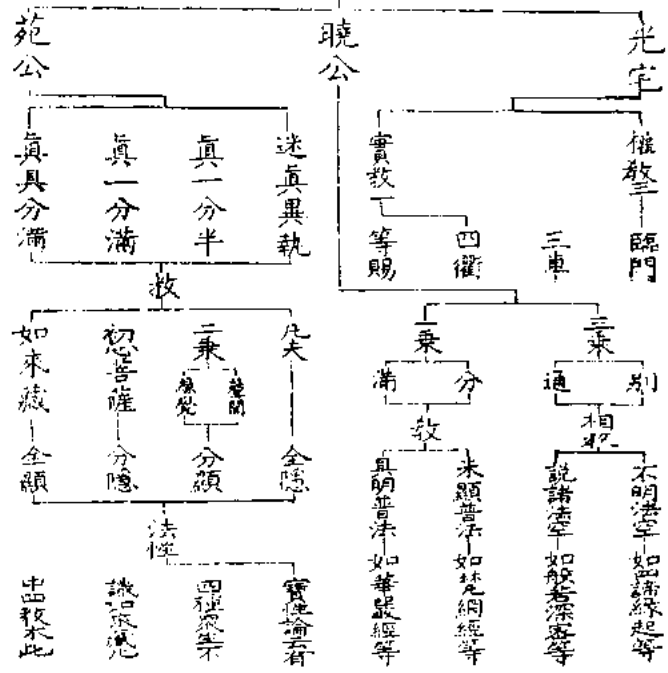 光宅
權教
臨門
三車
實教
四衢
等賜
曉公
三乘
別
通
相教
不明法空
如四諦緣起等
說諸法空
如般若深密等
一乘
分
滿
教
未顯普法
如梵網經等
具明普法
如華嚴經等
苑公
迷眞異執
眞一分半
眞一分滿
眞具分滿
教
凡夫
全隱
二乘
聲聞
緣覺
分顯
初心菩薩
分隱
如來藏
全顯
法性
寶性論云有
四種眾生不
識如來藏
出四教依此